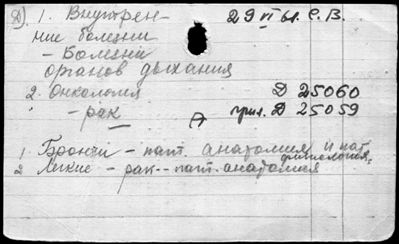 Д). 1. Внутрен- 29 VI 61. С. В.
ние болезни
- Болезни
органов дыхания
2. Онкология Д 25060
" - рак прил. Д 25059
1. Бронхи - пат. анатомия и пат.
физиология.
2 Легкие - рак -- пат. анатомия